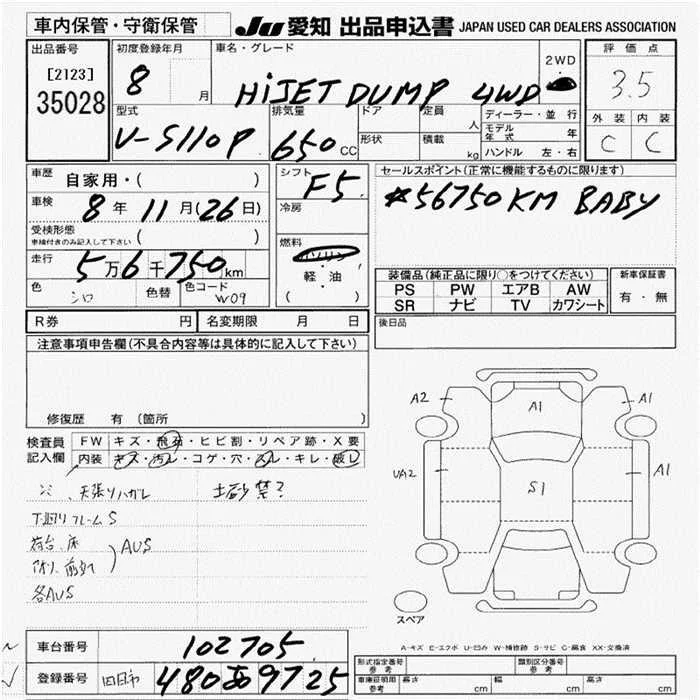 車内保管・守衛保管
JU 愛知 出品申込書 JAPAN USED CAR DEALERS ASSOCIATION
出品番号 初度登録年月 車名・グレード 2WD 評価点
[2123] 8 月 HiJET DUMP 4WD 3.5
35028
型式 排気量 ドア 定員 人 ディーラー・並行 外装 内装
V-S110P 650 CC 形状 積載 kg モデル年式 年 C C
ハンドル 左・右
車歴 自家用・( ) シフト F5 セールスポイント(正常に機能するものに限ります)
車検 8年 11月(26日) 冷房 *56750KM BABY
受検形態 ( )
車検付きのみ記入して下さい
走行 5万6千750km 燃料 ガソリン・軽油 ( )
装備品(純正品に限り○をつけてください) 新車保証書
色 シロ 色替 色コード W09
PS PW エアB AW 有・無
SR ナビ TV カワシート
R券 円 名変期限 月 日 後日品
注意事項申告欄(不具合内容等は具体的に記入して下さい)
修復歴 有(箇所 )
検査員 FW キズ・飛石・ヒビ割・リペア跡・X要
記入欄 内装 キズ・汚レ・コゲ・穴・スレ・キレ・破レ
天張りハガレ 土砂禁?
下廻りフレームS
荷台、床 AUS
各AUS
A2 A1 A1
UA2 S1 A1
スペア
A-キズ E-エクボ U-凹み W-補修跡 S-サビ C-腐食 XX-交換済
車台番号 102705
登録番号 480あ9725
形式指定番号 参考 類別区分番号 参考
車庫証明用 参考 長さ cm 幅 cm 高さ cm